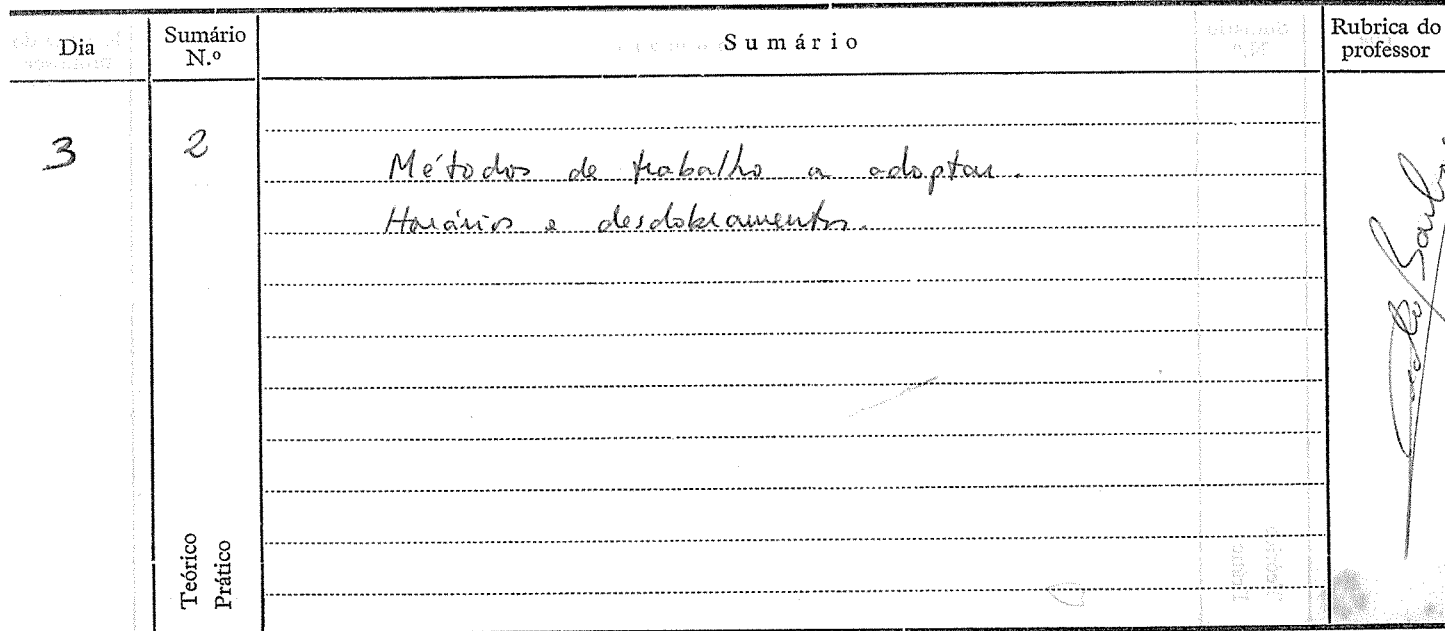 Dia
Sumário N.º
Sumário
Rubrica do professor
3
2
Métodos de trabalho a adoptar.
Horários e desdobramentos.
Teórico
Prático